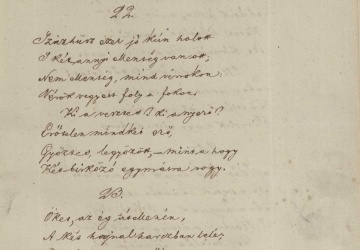 22.
Százhúsz ezer jó kún halott
S két annyi Menség van ott,
Nem Menség, mind vérrokon:
Vérök vegyest foly a fokon.
Ki a vesztes? ki a nyerő?
Erőtelen mindkét erő,
Győztes, legyőzött, – mint a hogy
Két birkózó egymásra rogy.
23.
Ökes, az ég
A kés hajnal harczban lelé,